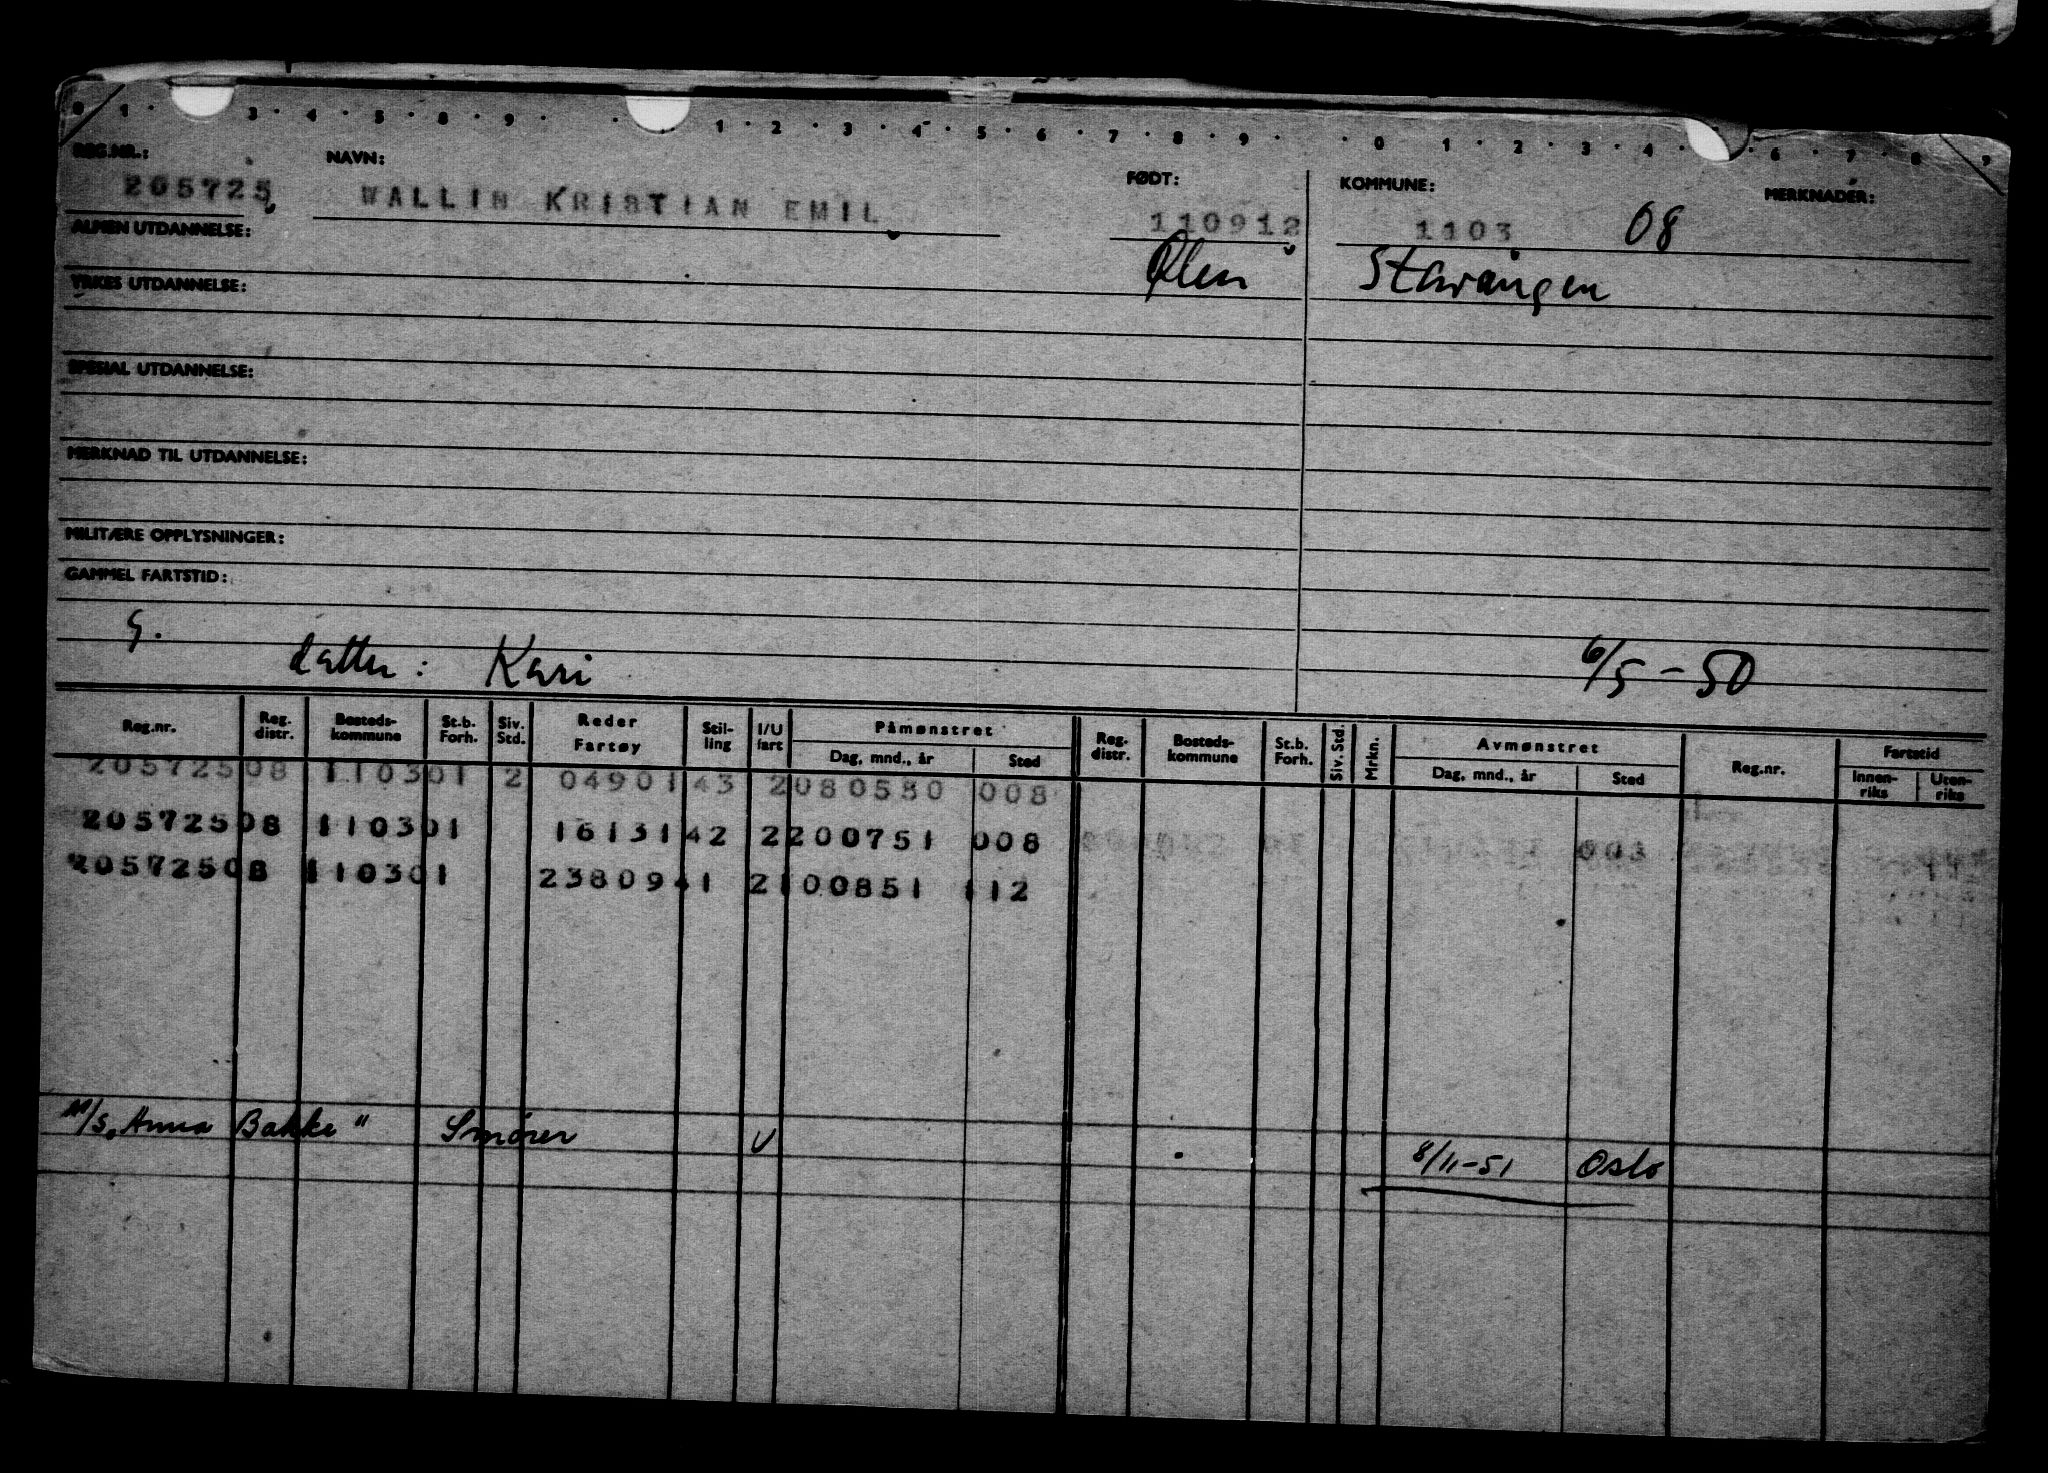 0 1 . 3 . 4 . 5 . 8 . 9 . . . 1 . 2 . 3 . 4 . 5 . 6 . 7 . 8 . 9 . . 0 1 . 2 . 3 . 4 . . 6 . 7 . 8 . 9
REG.NR.: NAVN: FØDT: KOMMUNE: MERKNADER:
205725 WALLIN KRISTIAN EMIL 110912 1103 08
ALMEN UTDANNELSE: Ølen Stavanger
YRKES UTDANNELSE:
SPESIAL UTDANNELSE:
MERKNAD TIL UTDANNELSE:
MILITÆRE OPPLYSNINGER:
GAMMEL FARTSTID:
G. datter: Kari 6/5-50
Reg.nr. Reg. distr. Bosteds-kommune St.b. Forh. Siv. Std. Reder Fartøy Stil-ling I/U fart Påmønstret Dag, mnd., år Sted Reg. distr. Bosteds-kommune St.b. Forh. Siv. Std. Mrkn. Avmønstret Dag, mnd., år Sted Reg.nr. Fartstid Innen-riks Uten-riks
20572508 110301 2 0490143 2080550 008
20572508 110301 1613142 2200751 008 003
20572508 110301 2380941 2100851 112
M/S "Anna Bakke" Smører U 8/11-51 Oslo